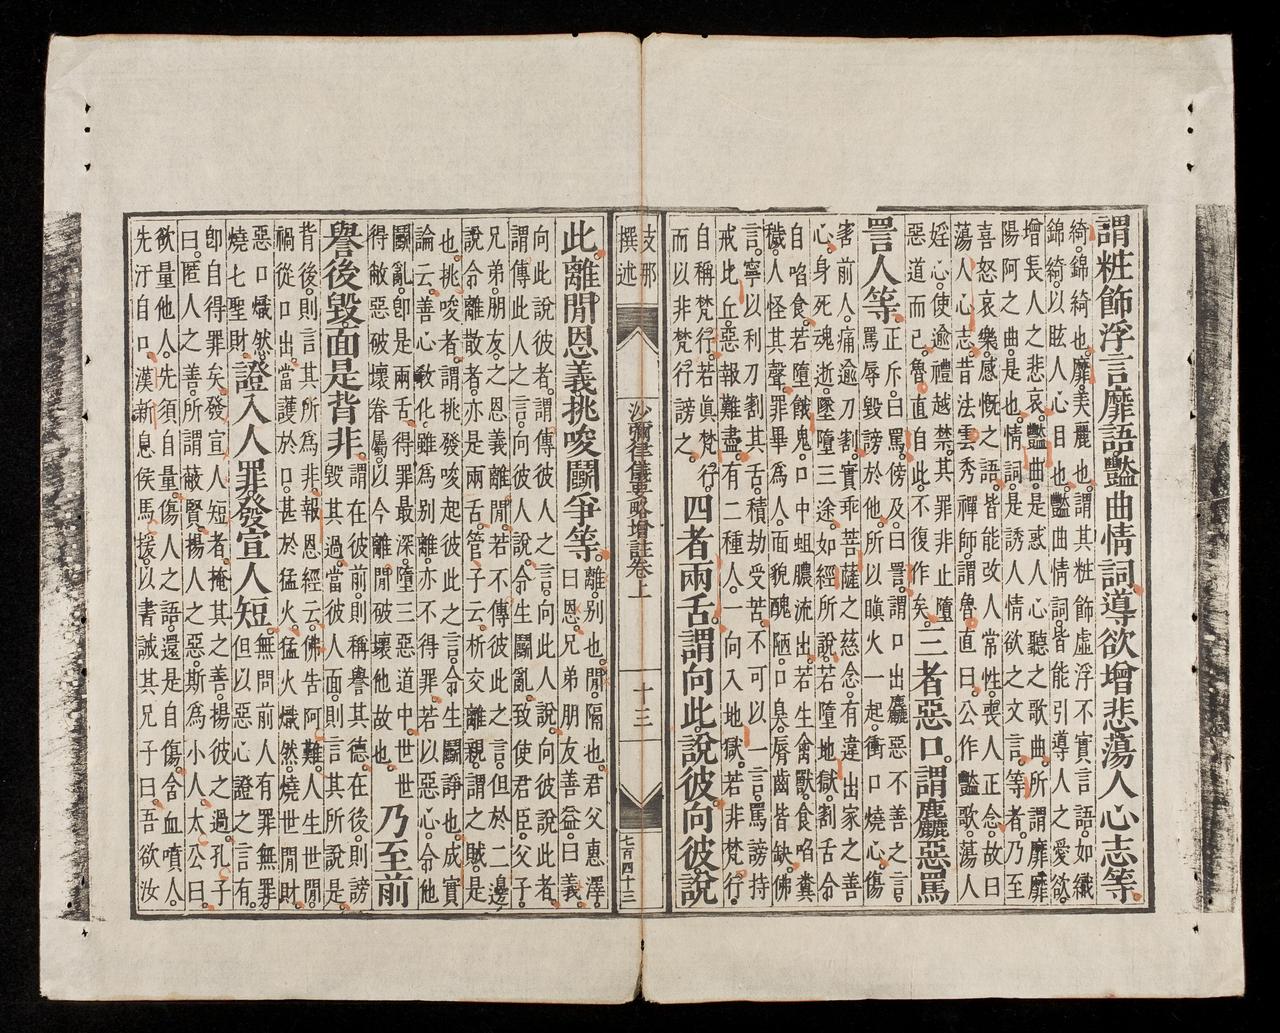 謂粧飾浮言靡語豔曲情詞導欲增悲蕩人心志等。
綺。錦綺也。靡。美麗也。謂其粧飾虛浮不實言語。如織
錦綺。以眩人心目也。豔曲情詞。皆能引導人之愛欲。
增長人之悲哀。豔曲。是惑人心聽之歌曲。所謂靡靡
陽阿之曲。是也。情詞。是誘人情欲之文言。等者。乃至
喜怒哀樂。感慨之語。皆能改人常性。喪人正念。故曰
蕩人心志。昔法雲秀禪師。謂魯直曰。公作豔歌。蕩人
婬心。使逾禮越禁。其罪非止墮
惡道而已。魯直自此。不復作矣。
三者惡口。謂麤惡罵
詈人等。
正斥曰罵。傍及曰詈。謂口出麤惡不善之言。
罵辱毀謗於他。所以瞋火一起。衝口燒心。傷
害前人。痛逾刀割。實乖菩薩之慈念。有違出家之善
心。身死魂逝。墜墮三途。如經所說。若墮地獄。割舌令
自啗食。若墮餓鬼。口中蛆膿流出。若生禽獸。食啗糞
穢。人怪其聲。罪畢為人。面貌醜陋。口臭。唇齒皆缺。佛
言。寧以利刀割其舌。積劫受苦。不可以一言。罵謗持
戒比丘。惡報難盡。有二種人。一向入地獄。若非梵行。
自稱梵行。若真梵行。
而以非梵行謗之。
四者兩舌。謂向此說彼。向彼說
支那撰述
沙彌律儀要略增註卷上
十三
七百四十三
此。離間恩義。挑唆鬭爭等。
離。別也。間。隔也。君父惠澤。
曰恩。兄弟朋友善益。曰義。
向此說彼者。謂傳彼人之言。向此人說。向彼說此者。
謂傳此人之言。向彼人說。令生鬭亂。致使君臣。父子。
兄弟。朋友之恩義離間。若不傳彼此之言。但於二邊
說。令離散者。亦是兩舌。管子云。析交離親。謂之賊。是
也。挑唆者。謂挑發唆起彼此之言。令生鬭諍也。成實
論云。善心教化。雖為別離。亦不得罪。若以惡心。令他
鬭亂。即是兩舌。得罪最深。墮三惡道中。世世
得敝惡破壞眷屬。以今離間破壞他故也。
乃至前
譽後毀。面是背非。
謂在彼前。則稱譽其德。在後。則謗
毀其過。當彼人面。則言其所說是。
背後。則言其所為非。報恩經云。佛告阿難。人生世間。
禍從口出。當護於口。甚於猛火。猛火熾然。燒世間財。
惡口熾然。
燒七聖財。
證入人罪。發宣人短。
無問前人有罪無罪。
但以惡心證之言有。
即自得罪矣。發宣人短者。掩其之善。揚彼之過。孔子
曰。匿人之善。所謂蔽賢。揚人之惡。斯為小人。太公曰。
欲量他人。先須自量。傷人之語。還是自傷。含血噴人。
先汙自口。漢新息侯馬援。以書誡其兄子曰。吾欲汝